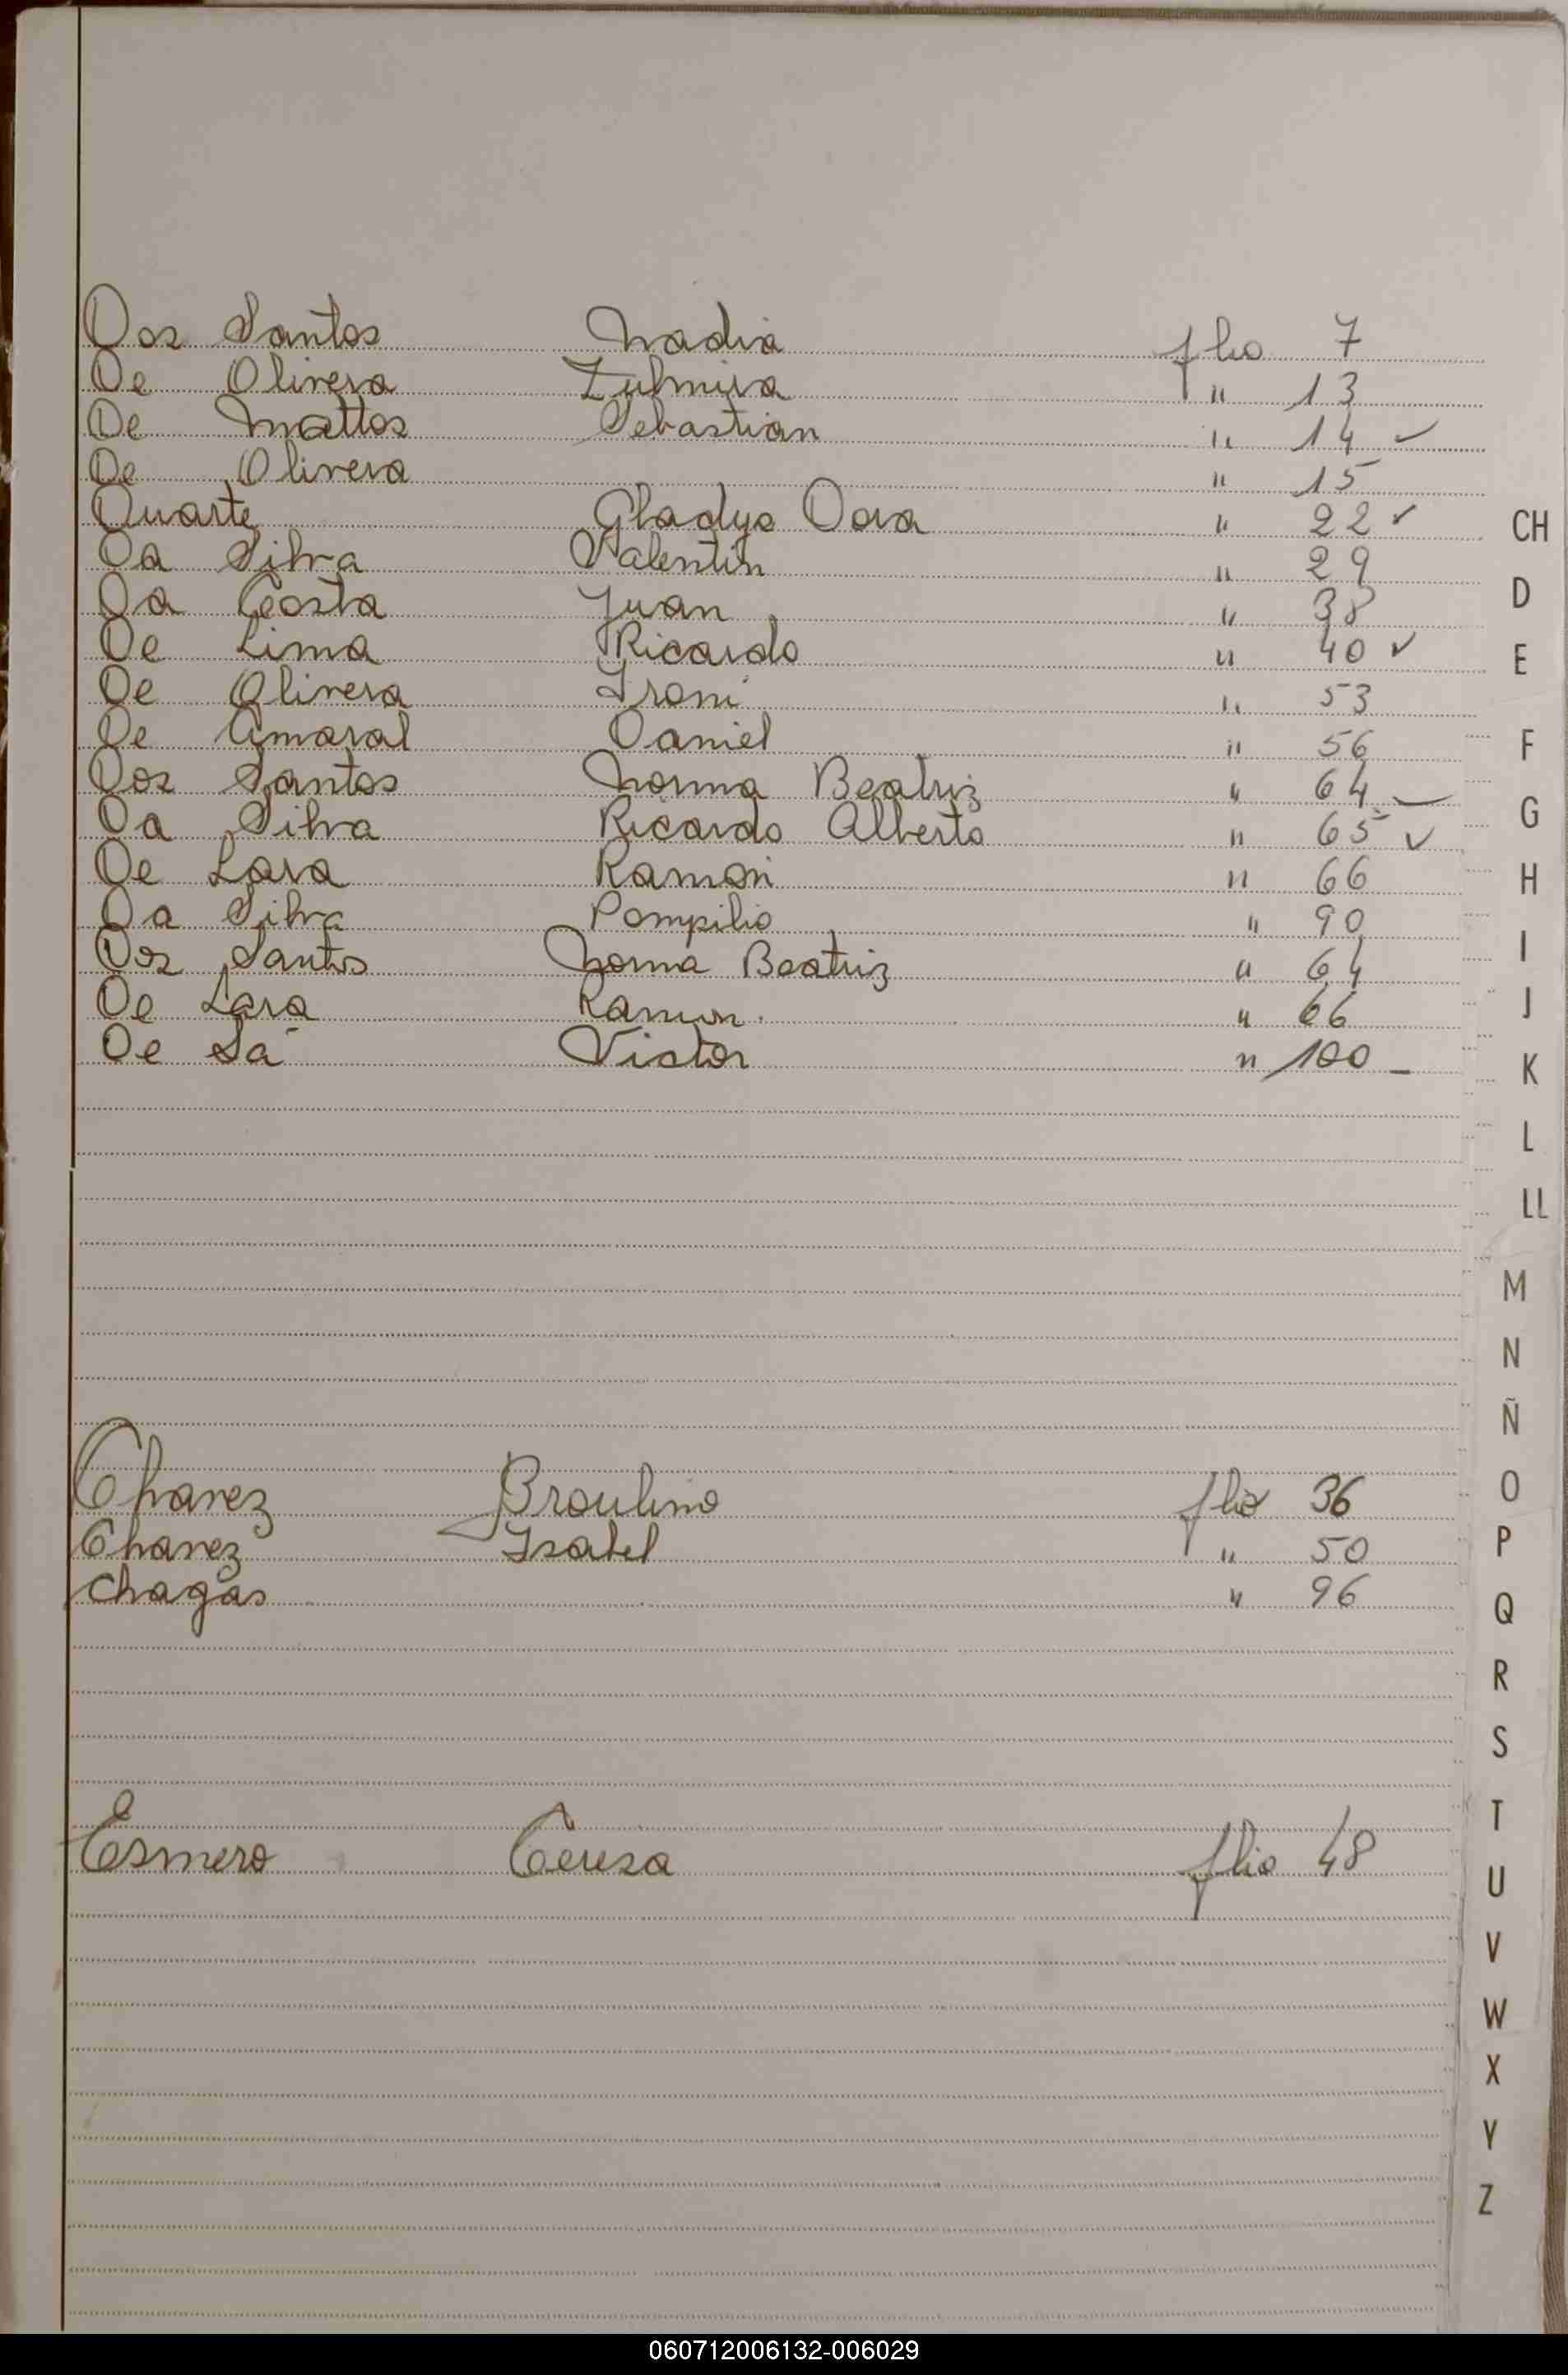 Dos Santos Nadia flio 7
De Olivera Zulmira " 13
De Mattos Sebastian " 14 ✓
De Olivera " 15
Duarte Gladys Dora " 22 ✓
Da Silva Valentin " 29
Da Costa Juan " 38
De Lima Ricardo " 40 ✓
De Olivera Ironi " 53
De Amaral Daniel " 56
Dos Santos Norma Beatriz " 64 —
Da Silva Ricardo Alberto " 65 ✓
De Lara Ramon " 66
Da Silva Pompilio " 90
Dos Santos Norma Beatriz " 64
De Lara Ramon. " 66
De Sá Victor " 100 –
Chavez Braulino flio 36
Chavez Isabel " 50
Chagas " 96
Esmero flio 48
CH
D
E
F
G
H
I
J
K
L
LL
M
N
Ñ
O
P
Q
R
S
T
U
V
W
X
Y
Z
060712006132-006029